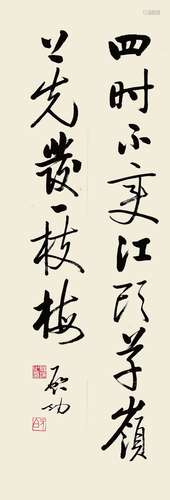 四时不变江头草岭
上先發一枝梅
启功